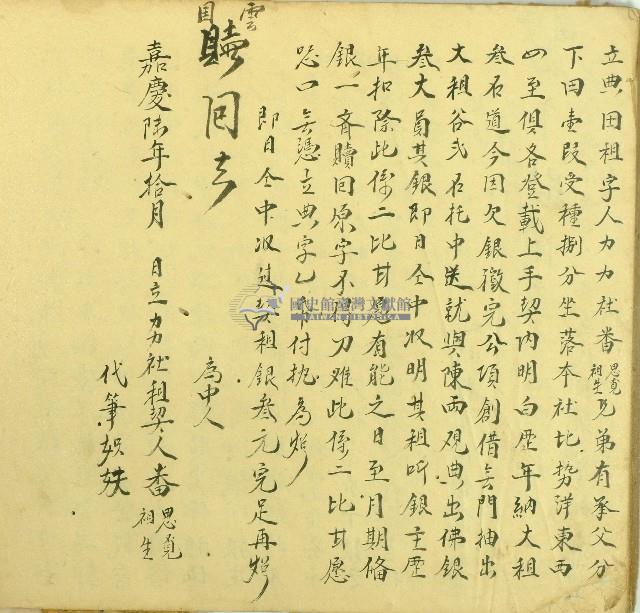 立典田租字人力力社番思覓祖生兄弟有承父分
下田壹段受種捌分坐落本社北勢洋東西
四至俱各登載上手契內明白歷年納大租
叁石道今因欠銀徵完公項創借無門抽出
大租谷弍石托中送就與陳兩觀典出佛銀
叁大員其銀即日仝中收明其租听銀主歷
年扣除此係二比甘愿有能之日至月期備
銀一齊贖回原字不得刀难此係二比甘愿
恐口無憑立典字乙帋付执為炤
即日仝中收過契租銀叁元完足再炤
為中人
嘉慶陸年拾月 日立力力社租契人番思覓祖生
代筆
贖回去
國史館臺灣文獻館
TAIWAN HISTORICA